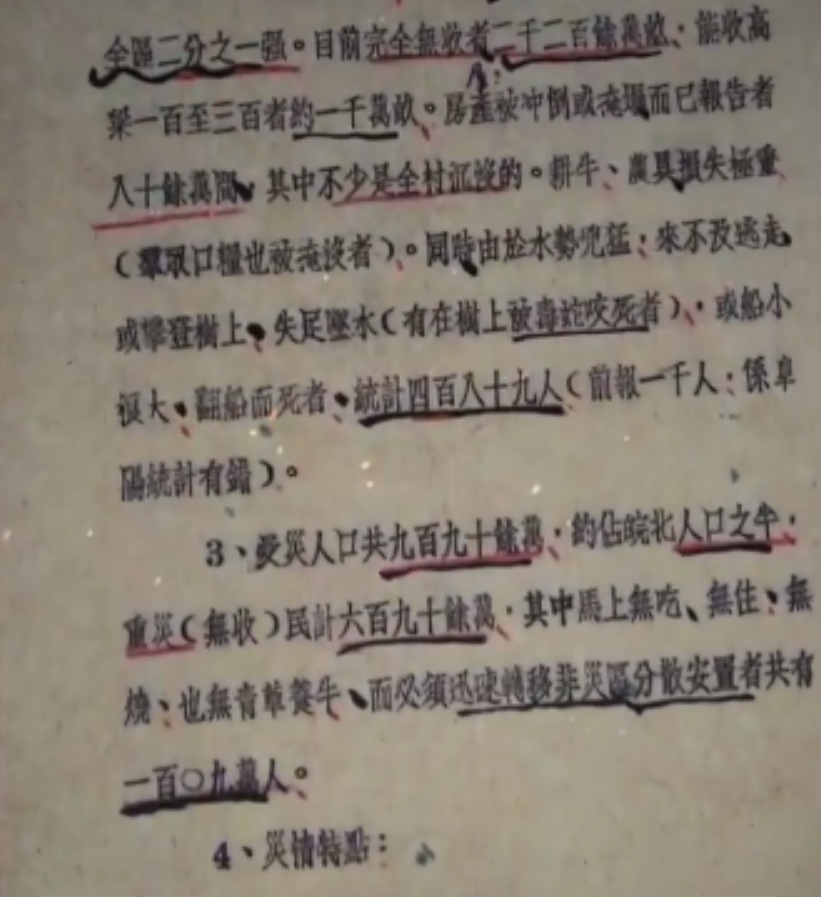 全區二分之一强。目前完全無收者二千二百餘萬畝，能收高
粱一百至三百者約一千萬畝。房產被冲倒或淹塌而已報告者
八十餘萬間，其中不少是全村沉沒的。耕牛、農具損失極重
（羣眾口糧也被淹沒者）。同時由於水勢兇猛，來不及逃走，
或攀登樹上，失足墜水（有在樹上被毒蛇咬死者），或船小
浪大，翻船而死者，統計四百八十九人（前報一千人，係阜
陽統計有錯）。
3、受災人口共九百九十餘萬，約佔皖北人口之半，
重災（無收）民計六百九十餘萬，其中馬上無吃、無住、無
燒、也無青草養牛、而必須迅速轉移非災區分散安置者共有
一百〇九萬人。
4、災情特點：